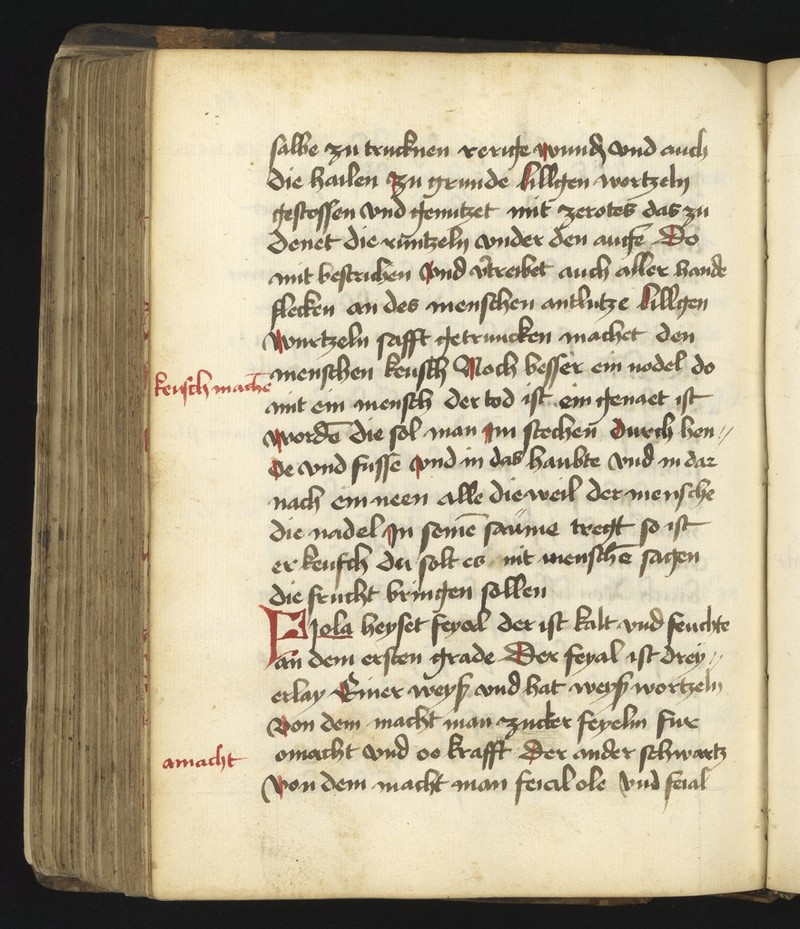 salbe zu trucknen rerige wund vnd auch
die hailen zu grunde lillgen wortzeln
gestossen vnd genutzet mit zerotes das zu
denet die runtzeln vnder den auge Do
mit bestrichen vnd vtreibet auch aller hande
flecken an des menschen antlutze lillgen
wurtzeln safft getruncken machet den
menschen keusch Noch besser ein nodel do
keusch mache
mit ein mensch der tod ist ein genaet ist
worde die sol man im stechen durch hen
de vnd fusse vnd in das haubte vnd in dar
nach ein neen alle die weil der mensche
die nadel in seine saume tregt so ist
er keusch du solt es nit mensche sagen
die frucht bringen sollen
Fiola heyset feyel der ist kalt vnd feuchte
an dem ersten grade Der feyal ist drey
erlay Einer weyß vnd hat weyß wortzeln
von dem macht man zucker feyelin fur
omacht vnd oo krafft Der ander schwartz
amacht
von dem macht man feial ole vnd feial